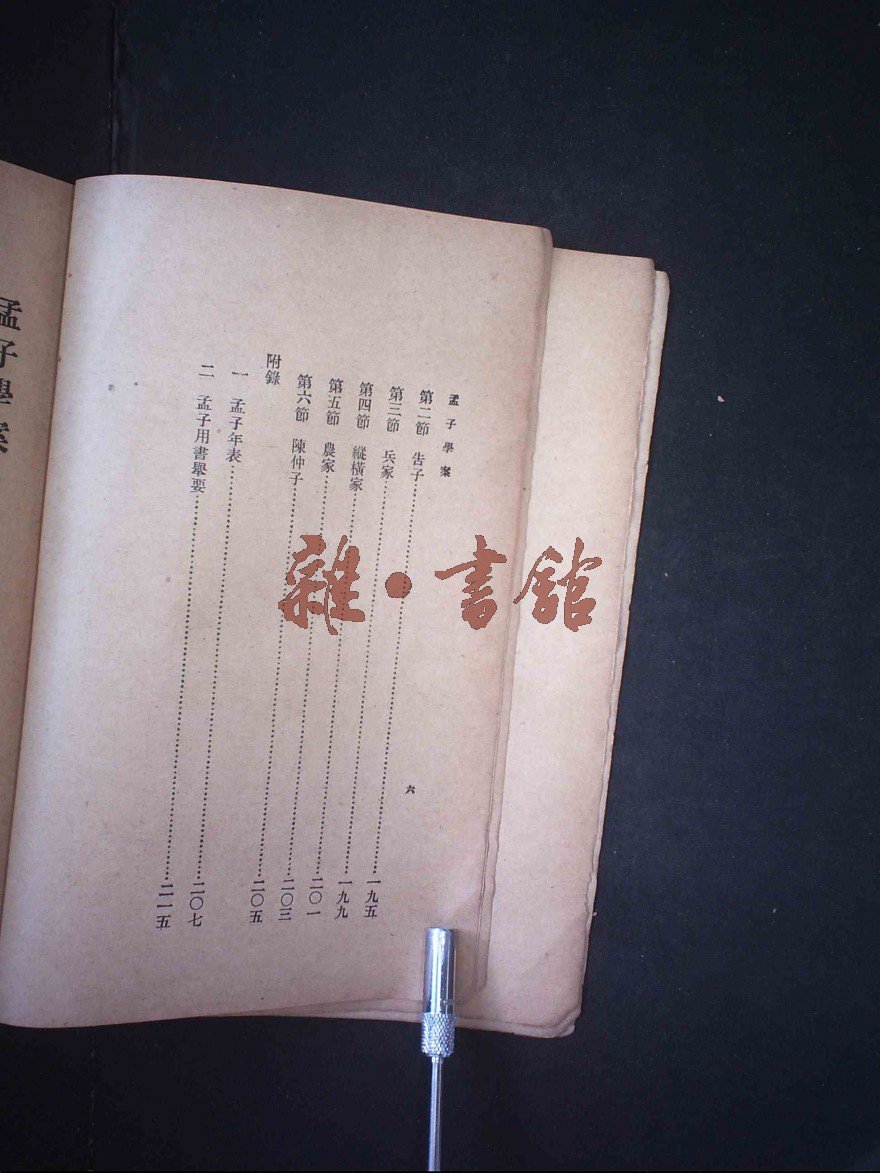 孟子學案
六
第二節 告子……一九五
第三節 兵家……一九九
第四節 縱橫家……二〇一
第五節 農家……二〇三
第六節 陳仲子……二〇五
附錄
一 孟子年表……二〇七
二 孟子用書舉要……二一五
孟子學案
雜·書館